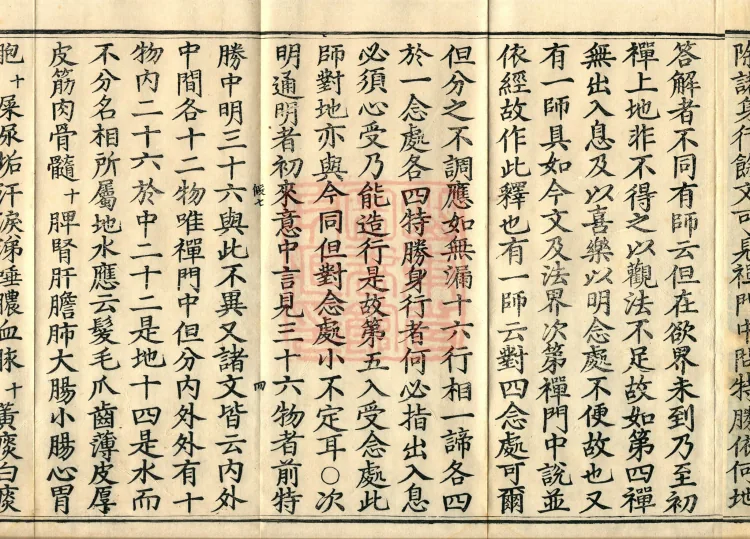 除諸其行餘文可見禪門中問特勝依何地
答解者不同有師云但在欲界未到乃至初
禪上地非不得之以觀法不足故如第四禪
無出入息及以喜樂以明念處不便故也又
有一師具如今文及法界次第禪門中說並
依經故作此釋也有一師云對四念處可爾
但分之不調應如無漏十六行相一諦各四
於一念處各四特勝身行者何必指出入息
必須心受乃能造行是故第五入受念處此
師對地亦與今同但對念處小不定耳○次
明通明者初來意中言見三十六物者前特
候七
四
勝中明三十六與此不異又諸文皆云內外
中間各十二物唯禪門中但分內外外有十
物內二十六於中二十二是地十四是水而
不分名相所屬地水應云髮毛爪齒薄皮厚
皮筋肉骨髓十脾腎肝膽肺大腸小腸心胃
胞十屎尿垢汗淚涕唾膿血脉十黃痰白痰